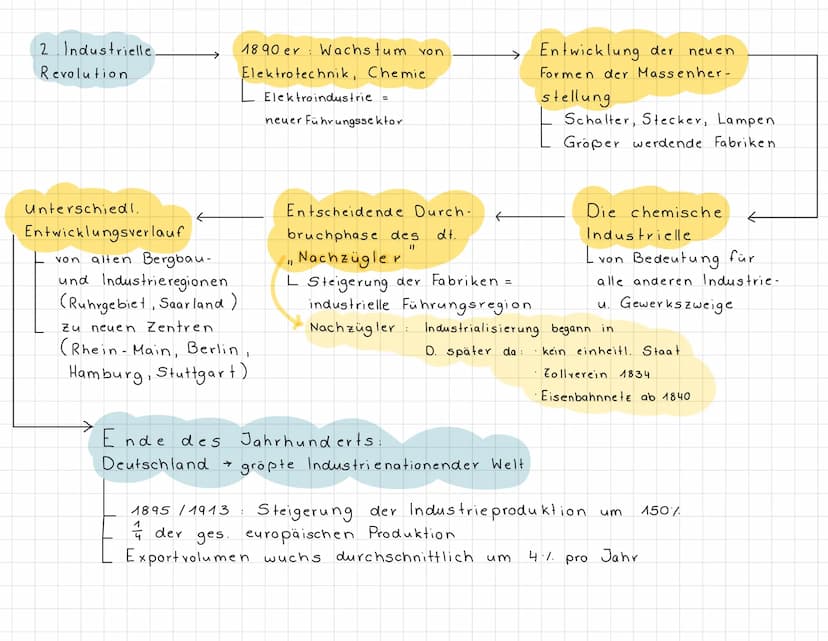 2. Industrielle
Revolution
1890er: Wachstum von
Elektrotechnik, Chemie
Elektroindustrie =
neuer Führungssektor
Entwicklung der neuen
Formen der Massenher-
stellung
Schalter, Stecker, Lampen
Größer werdende Fabriken
Die chemische
Industrielle
von Bedeutung für
alle anderen Industrie-
u. Gewerkszweige
Entscheidende Durch-
bruchphase des dt.
„Nachzügler"
Steigerung der Fabriken =
industrielle Führungsregion
Nachzügler: Industrialisierung begann in
D. später da: · kein einheitl. Staat
· Zollverein 1834
· Eisenbahnnetz ab 1840
Unterschiedl.
Entwicklungsverlauf
von alten Bergbau-
und Industrieregionen
(Ruhrgebiet, Saarland)
zu neuen Zentren
(Rhein-Main, Berlin,
Hamburg, Stuttgart)
Ende des Jahrhunderts:
Deutschland → größte Industrienationender Welt
1895/1913: Steigerung der Industrieproduktion um 150%
1/4 der ges. europäischen Produktion
Exportvolumen wuchs durchschnittlich um 4% pro Jahr